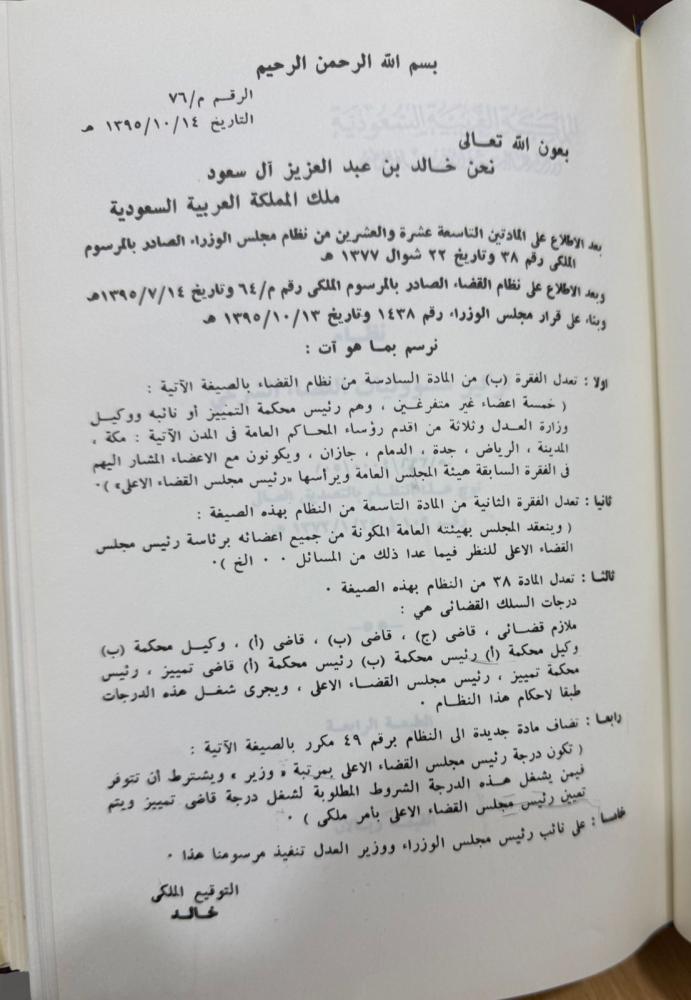 بسم الله الرحمن الرحيم
الرقم م/٧٦
التاريخ ١٣٩٥/١٠/١٤ هـ
بعون الله تعالى
نحن خالد بن عبد العزيز آل سعود
ملك المملكة العربية السعودية
بعد الاطلاع على المادتين التاسعة عشرة والعشرين من نظام مجلس الوزراء الصادر بالمرسوم
الملكى رقم ٣٨ وتاريخ ٢٢ شوال ١٣٧٧ هـ
وبعد الاطلاع على نظام القضاء الصادر بالمرسوم الملكى رقم م/٦٤ وتاريخ ١٣٩٥/٧/١٤هـ
وبناء على قرار مجلس الوزراء رقم ١٤٣٨ وتاريخ ١٣٩٥/١٠/١٣ هـ
نرسم بما هو آت :
اولا : تعدل الفقرة (ب) من المادة السادسة من نظام القضاء بالصيغة الآتية :
( خمسة اعضاء غير متفرغين ، وهم رئيس محكمة التمييز أو نائبه ووكيل
وزارة العدل وثلاثة من اقدم رؤساء المحاكم العامة فى المدن الآتية : مكة ،
المدينة ، الرياض ، جدة ، الدمام ، جازان ، ويكونون مع الاعضاء المشار اليهم
فى الفقرة السابقة هيئة المجلس العامة ويرأسها «رئيس مجلس القضاء الاعلى» )٠
ثانيا : تعدل الفقرة الثانية من المادة التاسعة من النظام بهذه الصيغة :
( وينعقد المجلس بهيئته العامة المكونة من جميع اعضائه برئاسة رئيس مجلس
القضاء الاعلى للنظر فيما عدا ذلك من المسائل ٠ ٠ الخ )٠
ثالثا : تعدل المادة ٣٨ من النظام بهذه الصيغة ٠
درجات السلك القضائى هي :
ملازم قضائى ، قاضى (ج) ، قاضى (ب) ، قاضى (أ) ، وكيل محكمة (ب)
وكيل محكمة (أ) رئيس محكمة (ب) رئيس محكمة (أ) قاضى تمييز ، رئيس
محكمة تمييز ، رئيس مجلس القضاء الاعلى ، ويجرى شغل هذه الدرجات
طبقا لاحكام هذا النظام ٠
رابعا : تضاف مادة جديدة الى النظام برقم ٤٩ مكرر بالصيغة الآتية :
( تكون درجة رئيس مجلس القضاء الاعلى بمرتبة « وزير » ويشترط أن تتوفر
فيمن يشغل هذه الدرجة الشروط المطلوبة لشغل درجة قاضى تمييز ويتم
تعيين رئيس مجلس القضاء الاعلى بأمر ملكى ) ٠
خامسا : على نائب رئيس مجلس الوزراء ووزير العدل تنفيذ مرسومنا هذا ٠
التوقيع الملكى
خالد